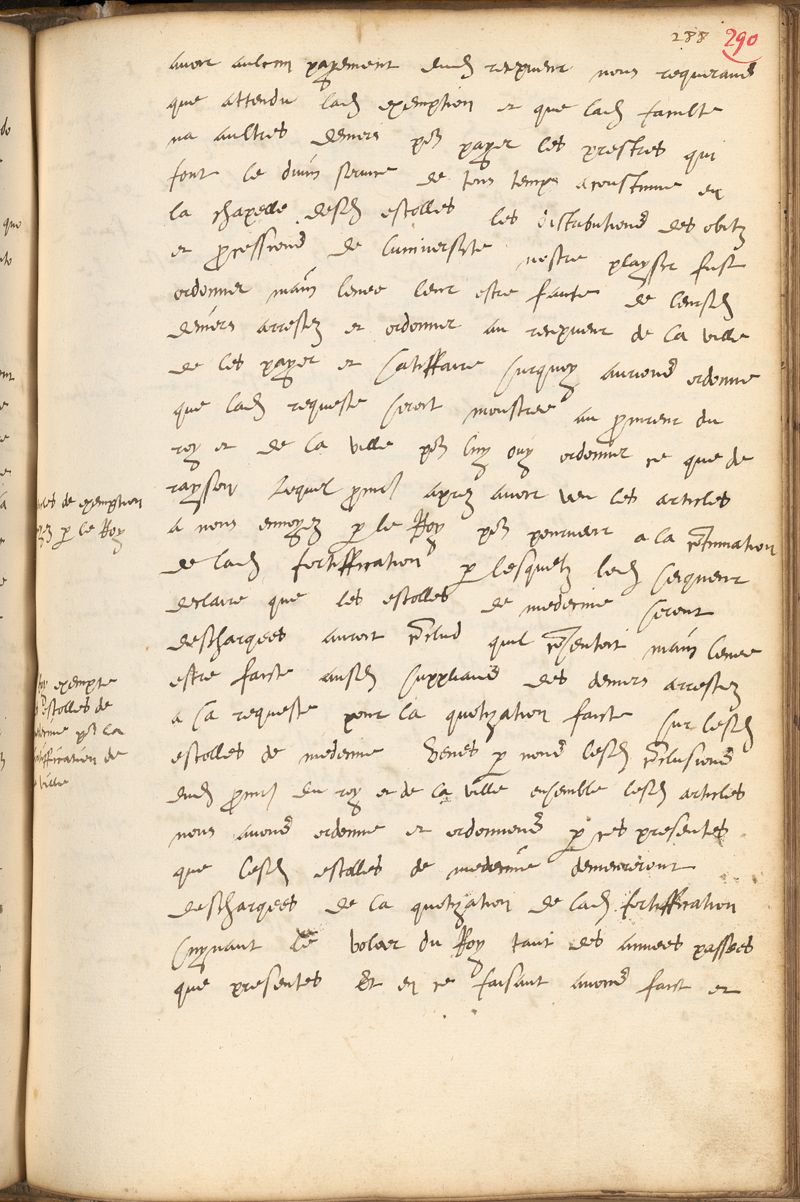 288 290
avoir aulcun payement dud recepveur nous requerans
que attendu lad exemption et que lad faculte
na aultres deniers por payer les prestres qui
font le divin service de tous temps acoustume en
la chapelle desd escolles les distributions des obitz
et processions de luniversite nostre playsir fust
ordonner main levee leur estre faicte de leursd
deniers arrestez et ordonner au recepveur de la ville
de les payer et satiffaire surquoy aurions ordonne
que lad requeste seroit monstree au procureur du
roy et de la ville por luy ouy ordonner ce que de
rayson Lequel procur apres avoir veu les articles
a nous envoyez par le Roy por pourveoir a la continuation
de lad fortiffication par lesquelz led seigneur
declaire que les escolles de medecine seront
deschargees auroit conclud quil consentoit main levee
estre faicte ausd supplians des deniers arrestez
a sa requeste pour la quotization faicte sur lesd
escolles de medecine Veues par nous lesd conclusions
dud procur du roy et de la ville ensemble lesd articles
nous avons ordonne et ordonnons par ces presentes
que lesd escolles de medecine demeureront
deschargees de la quotization de lad fortiffication
suyvant le voloir du Roy tant des annees passees
que presentes Et en ce faisant avons faict et
de exemption
par le Roy
exempte
escolles de
por la
fortiffication de
ville